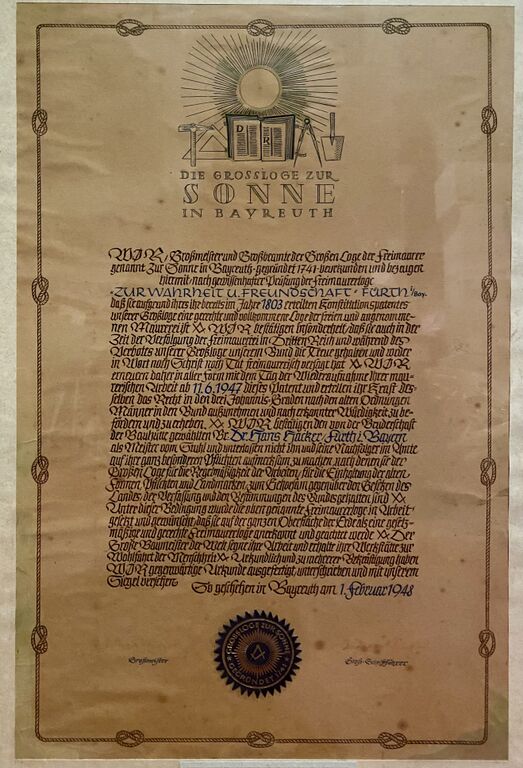 D R
DIE GROSSLOGE ZUR
SONNE
IN BAYREUTH
WIR, Großmeister und Großbeamte der Großen Loge der Freimaurer
genannt Zur Sonne in Bayreuth, gegründet 1741 bekunden und bezeugen
hiermit nach gewissenhafter Prüfung der Freimaurerloge
·ZUR WAHRHEIT U. FREUNDSCHAFT · FÜRTH i/Bay.
daß sie aufgrund ihres ihr bereits im Jahre 1803 erteilten Konstitutionspatentes
unserer Großloge eine gerechte und vollkommene Loge der freien und angenomme-
nen Maurerei ist XX WIR bestätigen insonderheit, daß sie auch in der
Zeit der Verfolgung der Freimaurerei im Dritten Reich und während des
Verbotes unserer Großloge unserem Bund die Treue gehalten und weder
in Wort noch Schrift noch Tat freimaurerisch versagt hat XX WIR
erneuern daher in aller Form mit dem Tag der Wiederaufnahme Ihrer mau-
rerischen Arbeit ab 17.6.1947 dieses Patent und erteilen ihr Kraft des-
selben das Recht in den drei Johannis-Graden nach den alten Ordnungen
Männer in den Bund aufzunehmen und nach erkannter Würdigkeit zu be-
fördern und zu erheben. XX WIR bestätigen den von der Bruderschaft
der Bauhütte gewählten Br. Dr. Hans Hacker, Fürth i. Bayern
als Meister vom Stuhl und unterlassen nicht ihn und seine Nachfolger im Amte
auf ihre ganz besonderen Pflichten aufmerksam zu machen, nach denen sie der
Großen Loge für die Regelmäßigkeit der Arbeiten, für die Einhaltung der alten
Formen, Pflichten und Landmarken, zum Gehorsam gegenüber den Gesetzen des
Landes, der Verfassung und den Bestimmungen des Bundes gehalten sind XX
Unter dieser Bedingung wurde die oben genannte Freimaurerloge in Arbeit
gesetzt und gewünscht, daß sie auf der ganzen Oberfläche der Erde als eine gesetz-
mäßige und gerechte Freimaurerloge anerkannt und geachtet werde XX Der
Große Baumeister der Welt segne ihre Arbeit und erhalte ihre Werkstätte zur
Wohlfahrt der Menschheit XX Urkundlich und zu mehrerer Bekräftigung haben
WIR gegenwärtige Urkunde ausgefertigt, unterschrieben und mit unserem
Siegel versehen.
So geschehen in Bayreuth am 1. Februar 1948
GROSSLOGE ZUR SONNE
GEGRÜNDET 1741
Großmeister
Groß-Schriftführer